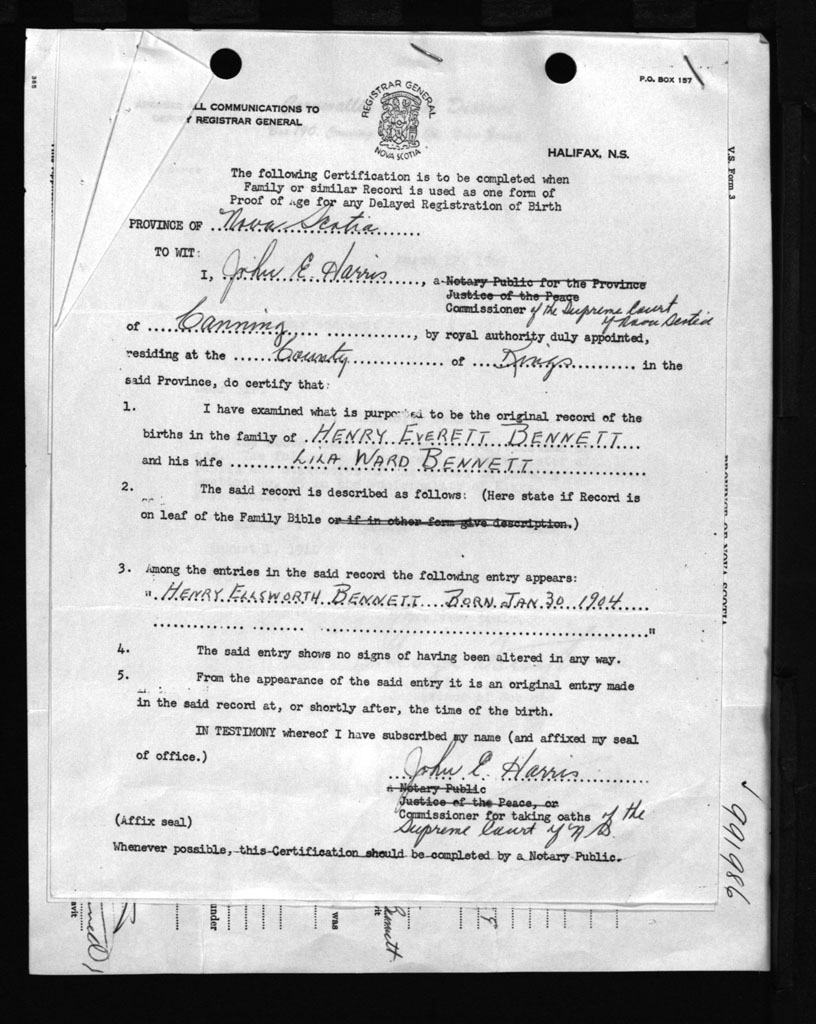 P.O. BOX 157
LL COMMUNICATIONS TO
Y REGISTRAR GENERAL
REGISTRAR GENERAL
NOVA SCOTIA
HALIFAX, N.S.
V.S. Form 3
The following Certification is to be completed when
Family or similar Record is used as one form of
Proof of Age for any Delayed Registration of Birth
PROVINCE OF ..Nova Scotia......
TO WIT:
I, John E. Harris......, a Notary Public for the Province
Justice of the Peace
Commissioner of the Supreme Court
of Nova Scotia
of ....Canning............, by royal authority duly appointed,
residing at the .....County............... of ....Kings......... in the
said Province, do certify that:
1. I have examined what is purported to be the original record of the
births in the family of .HENRY EVERETT BENNETT...
and his wife .........LILA WARD BENNETT...............
2. The said record is described as follows: (Here state if Record is
on leaf of the Family Bible or if in other form give description.)
3. Among the entries in the said record the following entry appears:
"..HENRY ELLSWORTH BENNETT BORN JAN 30 1904....
.............................................................."
4. The said entry shows no signs of having been altered in any way.
5. From the appearance of the said entry it is an original entry made
in the said record at, or shortly after, the time of the birth.
IN TESTIMONY whereof I have subscribed my name (and affixed my seal
of office.)
...John E. Harris..........
a Notary Public
Justice of the Peace, or
Commissioner for taking oaths of the
Supreme Court of N S.
(Affix seal)
Whenever possible, this Certification should be completed by a Notary Public.
991986
under
was
Bennett